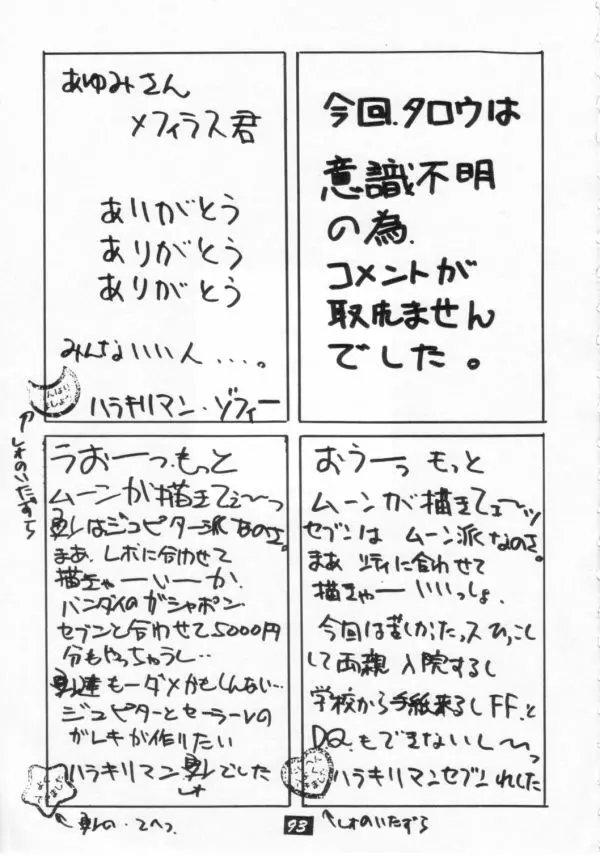 今回.タロウは
意識不明
の為.
コメントが
取れません
でした。
あゆみさん
メフィラス君
ありがとう
ありがとう
ありがとう
みんないい人 ....。
ハラキリマン・ゾフィー
おうーっ もっと
ムーンが描きてェ〜ッ
セブンは ムーン派なのさ。
まあ リティに合わせて
描きゃー いいっしょ.
今回は苦しかたっス ひっこし
して両親 入院するし
学校から手紙来るしFF.と
DQ.もできないし〜っ
ハラキリマンセブンれした
しょのいたずら
うおーっ.もっと
ムーンが描きてぇ〜っ
はジュピター派なのさ。
まあ.レボに合わせて
描きゃーいーか.
バンダイのガシャポン
セブンと合わせて5000円
分もやっちゃうし..
達もーダメかもしんない...
ジュピターとセーラーVの
ガレキが作りたい
ハラキリマン でした
しょのいたずら
93